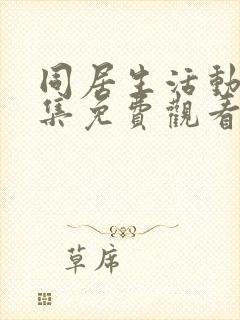 同居生活動
集免費觀看
草席